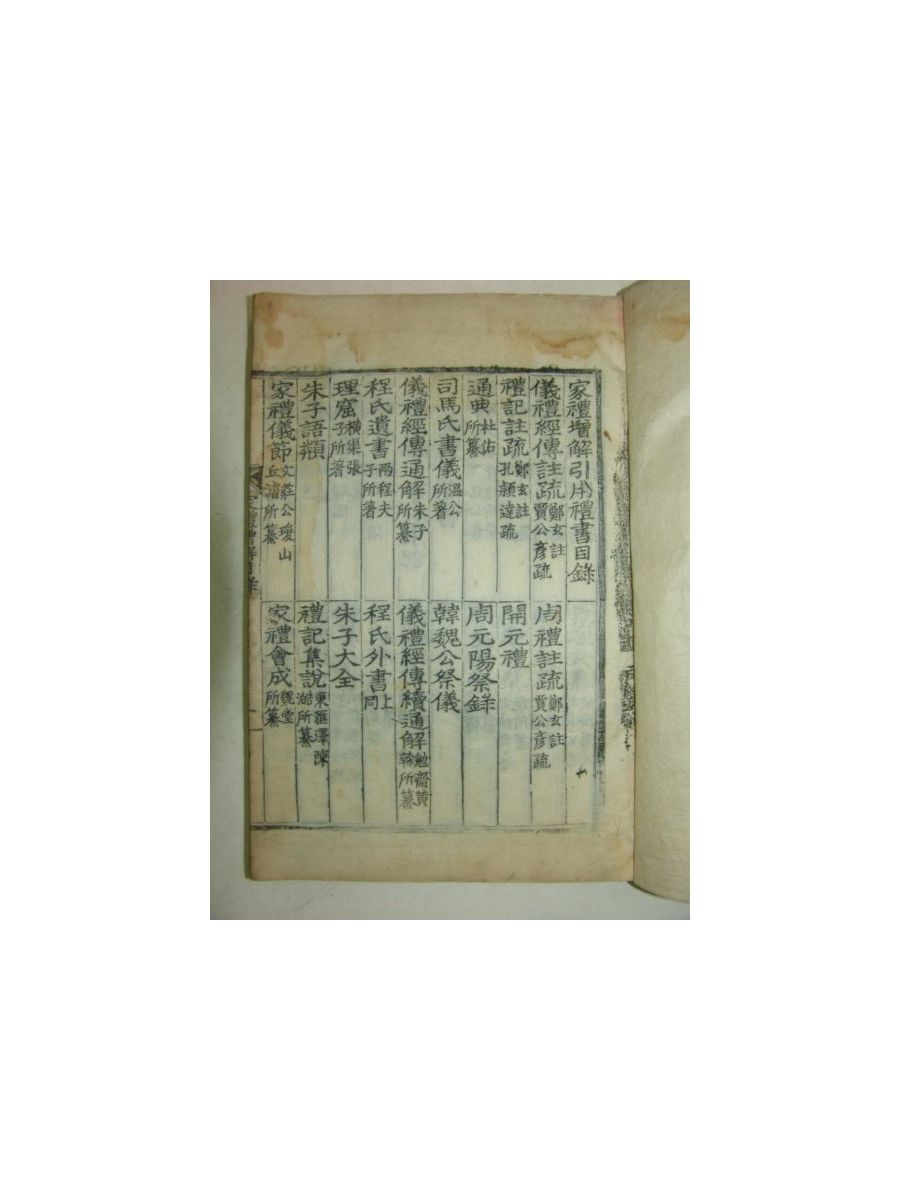 家禮增解引用禮書目錄
儀禮經傳註疏 鄭玄註 賈公彥疏 周禮註疏 鄭玄註 賈公彥疏
禮記註疏 鄭玄註 孔穎達疏 開元禮
通典 杜佑所纂 周元陽祭錄
司馬氏書儀 溫公所著 韓魏公祭儀
儀禮經傳通解 朱子所纂 儀禮經傳續通解 勉齋黃榦所纂
程氏遺書 兩程夫子所著 程氏外書 上同
理窟 橫渠張子所著 朱子大全
朱子語類 禮記集說 東滙澤陳澔所纂
家禮儀節 文莊公瓊山丘濬所纂 家禮會成 魏堂所纂